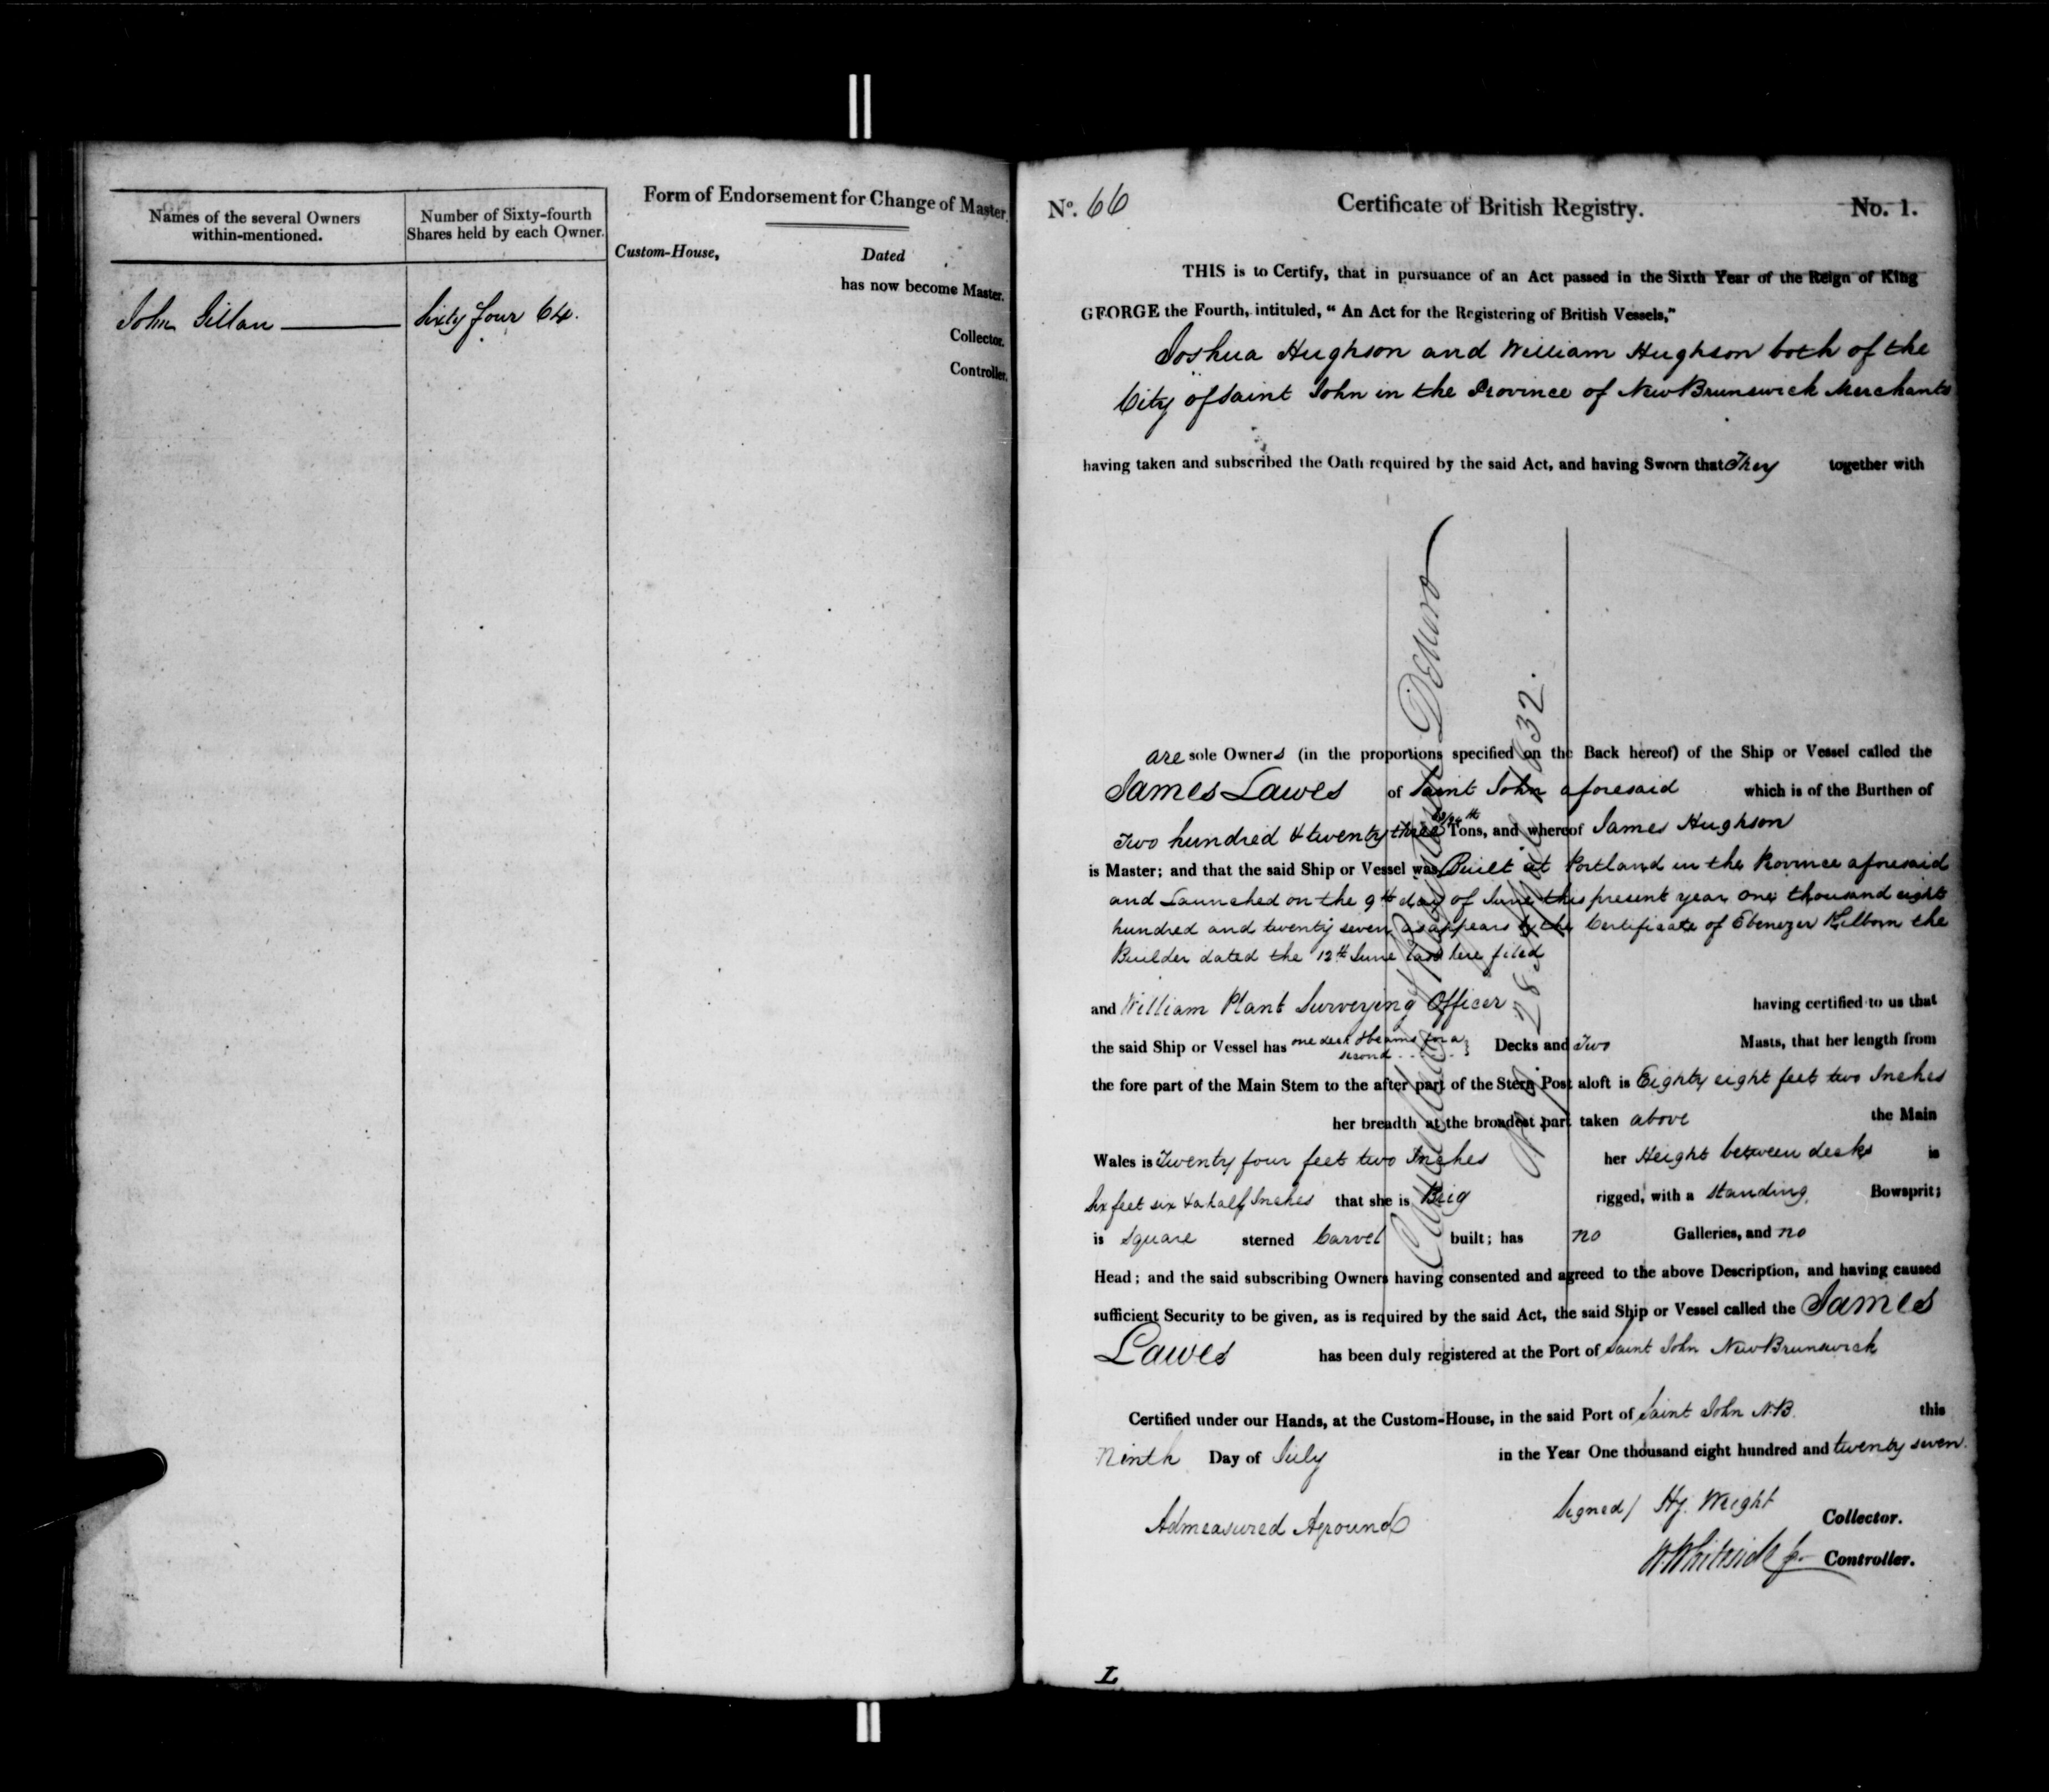 Names of the several Owners
within-mentioned.
Number of Sixty-fourth
Shares held by each Owner.
John Gillan
Sixty four 64.
Form of Endorsement for Change of Master.
Custom-House, Dated
has now become Master.
Collector.
Controller.
No. 66 Certificate of British Registry. No. 1.
THIS is to Certify, that in pursuance of an Act passed in the Sixth Year of the Reign of King
GEORGE the Fourth, intituled, "An Act for the Registering of British Vessels,"
Joshua Hughson and William Hughson both of the
City of Saint John in the Province of New Brunswick Merchants
having taken and subscribed the Oath required by the said Act, and having Sworn that They together with
are sole Owners (in the proportions specified on the Back hereof) of the Ship or Vessel called the
James Lawes of Saint John aforesaid which is of the Burthen of
Two hundred & twenty three Tons, and whereof James Hughson
is Master; and that the said Ship or Vessel was Built at Portland in the Province aforesaid
and Launched on the 9th day of June this present year one thousand eight
hundred and twenty seven as appears by the Certificate of Ebenezer Kilborn the
Builder dated the 12th June last here filed
and William Plant Surveying Officer having certified to us that
the said Ship or Vessel has one deck & beams for a second Decks and Two Masts, that her length from
the fore part of the Main Stem to the after part of the Stern Post aloft is Eighty eight feet two Inches
her breadth at the broadest part taken above the Main
Wales is Twenty four feet two Inches her Height between decks is
Six feet six & a half Inches that she is Brig rigged, with a standing Bowsprit;
is Square sterned Carvel built; has no Galleries, and no
Head; and the said subscribing Owners having consented and agreed to the above Description, and having caused
sufficient Security to be given, as is required by the said Act, the said Ship or Vessel called the James
Lawes has been duly registered at the Port of Saint John New Brunswick
Certified under our Hands, at the Custom-House, in the said Port of Saint John N.B. this
Ninth Day of July in the Year One thousand eight hundred and twenty seven.
Signed / Hy. Wright Collector.
Admeasured Aground
W. Whiteside Controller.
L